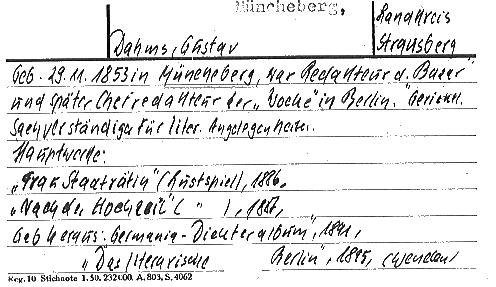 Müncheberg, Landkreis
Dahms, Gustav Strausberg
Geb. 29.11.1853 in Müncheberg, war Redakteur d. „Bazar"
und später Chefredakteur der „Woche" in Berlin. Gerichtl.
Sachverständiger für liter. Angelegenheiten.
Hauptwerke:
„Frau Staatsrätin" (Lustspiel), 1886,
„Nach der Hochzeit" ( " ), 1887,
Geb heraus: Germania-Dichteralbum", 1891,
„Das literarische Berlin", 1895, (wenden)
Reg. 10 Stichnote 1. 50. 232000. A. 803, S. 4062